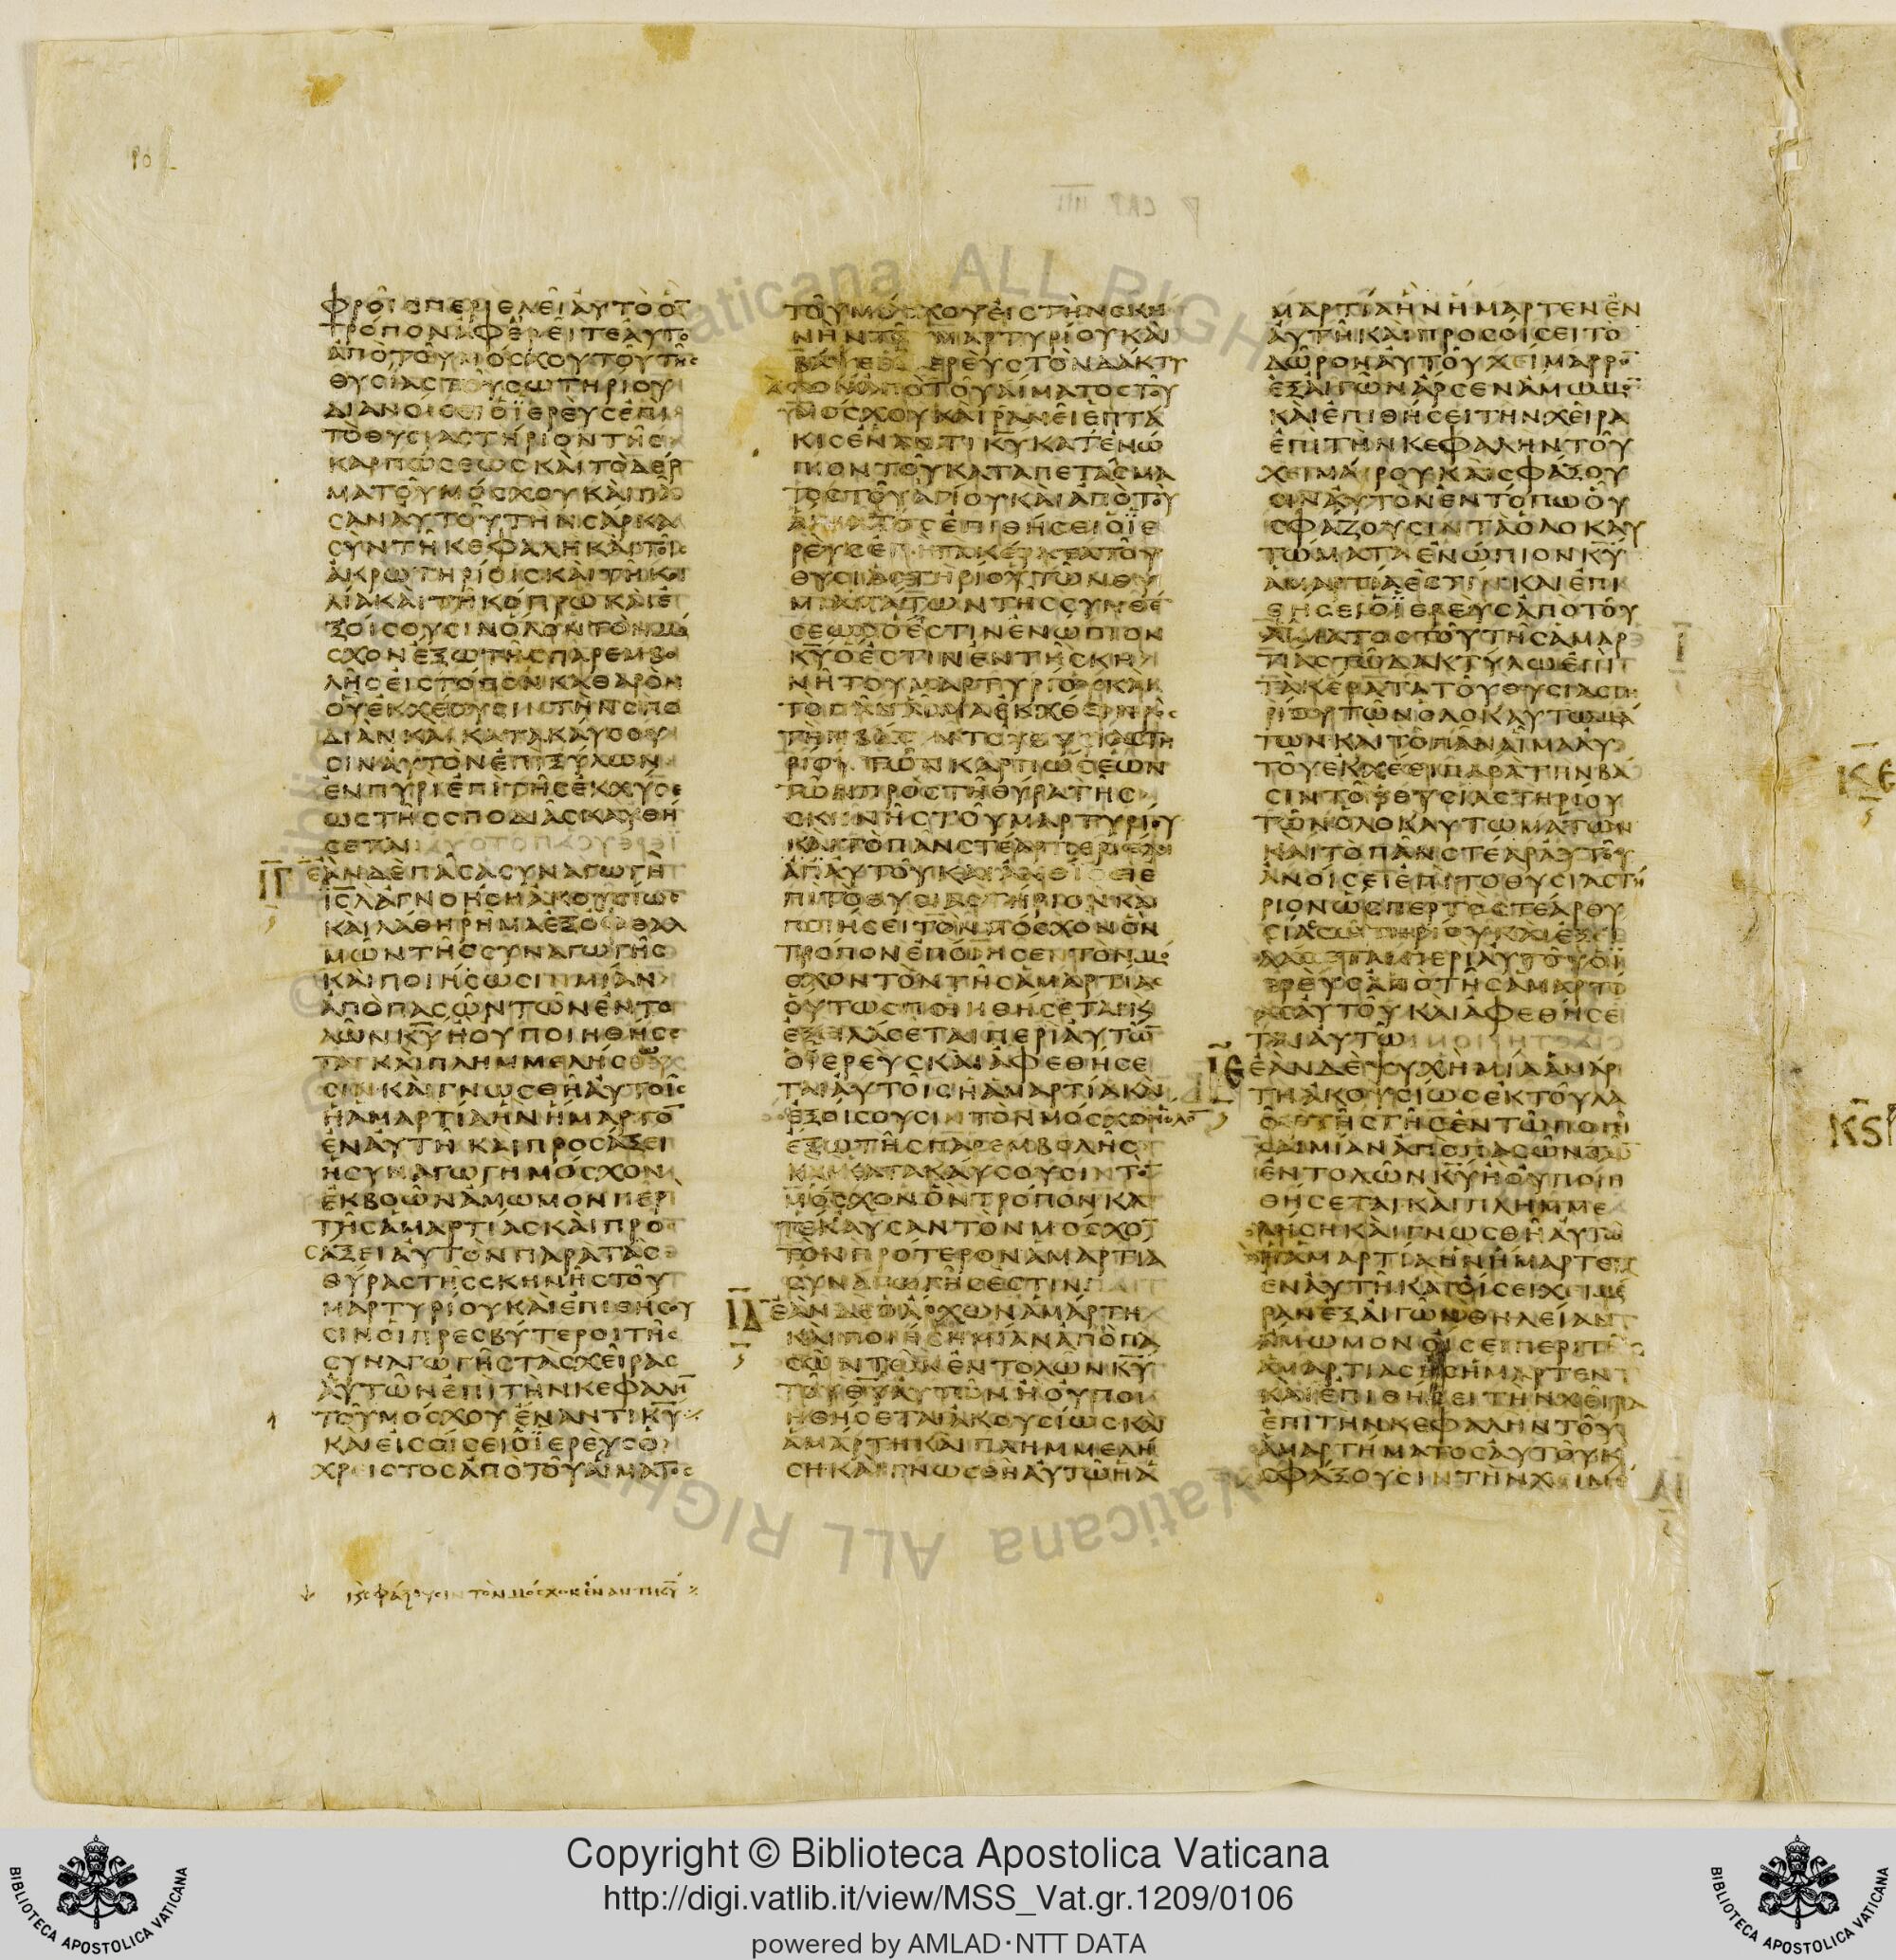 ΦΡΟΙΣ ΠΕΡΙΕΛΕΙ ΑΥΤΟ ΟΝ
ΤΡΟΠΟΝ ΑΦΕΡΕΙΤΕ ΑΥΤΟ
ΑΠΟ ΤΟΥ ΜΟΣΧΟΥ ΤΟΥ ΤΗΣ
ΘΥΣΙΑΣ ΤΟΥ ΣΩΤΗΡΙΟΥ
ΑΝΟΙΣΕΙ Ο ΙΕΡΕΥΣ ΕΠΙ
ΤΟ ΘΥΣΙΑΣΤΗΡΙΟΝ ΤΗΣ
ΚΑΡΠΩΣΕΩΣ ΚΑΙ ΤΟ ΔΕΡ
ΜΑ ΤΟΥ ΜΟΣΧΟΥ ΚΑΙ ΠΑ
ΣΑΝ ΑΥΤΟΥ ΤΗΝ ΣΑΡΚΑ
ΣΥΝ ΤΗ ΚΕΦΑΛΗ ΚΑΙ ΤΟΙΣ
ΑΚΡΩΤΗΡΙΟΙΣ ΚΑΙ ΤΗ ΚΟΙ
ΛΙΑ ΚΑΙ ΤΗ ΚΟΠΡΩ ΚΑΙ Ε
ΞΟΙΣΟΥΣΙΝ ΟΛΟΝ ΤΟΝ ΜΟ
ΣΧΟΝ ΕΞΩ ΤΗΣ ΠΑΡΕΜΒΟ
ΛΗΣ ΕΙΣ ΤΟΠΟΝ ΚΑΘΑΡΟΝ
ΟΥ ΕΚΧΕΟΥΣΙΝ ΤΗΝ ΣΠΟ
ΔΙΑΝ ΚΑΙ ΚΑΤΑΚΑΥΣΟΥ
ΣΙΝ ΑΥΤΟΝ ΕΠΙ ΞΥΛΩΝ
ΕΝ ΠΥΡΙ ΕΠΙ ΤΗΣ ΕΚΧΥΣΕ
ΩΣ ΤΗΣ ΣΠΟΔΙΑΣ ΚΑΥΘΗ
ΣΕΤΑΙ
ΙΓ ΕΑΝ ΔΕ ΠΑΣΑ ΣΥΝΑΓΩΓΗ
ΙΣΛ ΑΓΝΟΗΣΗ ΑΚΟΥΣΙΩΣ
ΚΑΙ ΛΑΘΗ ΡΗΜΑ ΕΞ ΟΦΘΑΛ
ΜΩΝ ΤΗΣ ΣΥΝΑΓΩΓΗΣ
ΚΑΙ ΠΟΙΗΣΩΣΙΝ ΜΙΑΝ
ΑΠΟ ΠΑΣΩΝ ΤΩΝ ΕΝΤΟ
ΛΩΝ ΚΥ Η ΟΥ ΠΟΙΗΘΗΣΕ
ΤΑΙ ΚΑΙ ΠΛΗΜΜΕΛΗΣΩ
ΣΙΝ ΚΑΙ ΓΝΩΣΘΗ ΑΥΤΟΙΣ
Η ΑΜΑΡΤΙΑ ΗΝ ΗΜΑΡΤΟΝ
ΕΝ ΑΥΤΗ ΚΑΙ ΠΡΟΣΑΞΕΙ
Η ΣΥΝΑΓΩΓΗ ΜΟΣΧΟΝ
ΕΚ ΒΟΩΝ ΑΜΩΜΟΝ ΠΕΡΙ
ΤΗΣ ΑΜΑΡΤΙΑΣ ΚΑΙ ΠΡΟ
ΣΑΞΕΙ ΑΥΤΟΝ ΠΑΡΑ ΤΑΣ
ΘΥΡΑΣ ΤΗΣ ΣΚΗΝΗΣ ΤΟΥ
ΜΑΡΤΥΡΙΟΥ ΚΑΙ ΕΠΙΘΗΣΟΥ
ΣΙΝ ΟΙ ΠΡΕΣΒΥΤΕΡΟΙ ΤΗΣ
ΣΥΝΑΓΩΓΗΣ ΤΑΣ ΧΕΙΡΑΣ
ΑΥΤΩΝ ΕΠΙ ΤΗΝ ΚΕΦΑΛΗΝ
ΤΟΥ ΜΟΣΧΟΥ ΕΝΑΝΤΙ ΚΥ
ΚΑΙ ΕΙΣΟΙΣΕΙ Ο ΙΕΡΕΥΣ Ο
ΧΡΕΙΣΤΟΣ ΑΠΟ ΤΟΥ ΑΙΜΑΤΟΣ
κ(αι) σφάξουσιν τὸν μόσχον ἔναντι κυ
ΤΟΥ ΜΟΣΧΟΥ ΕΙΣ ΤΗΝ ΣΚΗ
ΝΗΝ ΤΟΥ ΜΑΡΤΥΡΙΟΥ ΚΑΙ
ΒΑΨΕΙ Ο ΙΕΡΕΥΣ ΤΟΝ ΔΑΚΤΥ
ΛΟΝ ΑΠΟ ΤΟΥ ΑΙΜΑΤΟΣ ΤΟΥ
ΜΟΣΧΟΥ ΚΑΙ ΡΑΝΕΙ ΕΠΤΑ
ΚΙΣ ΕΝΑΝΤΙ ΚΥ ΚΑΤΕΝΩ
ΠΙΟΝ ΤΟΥ ΚΑΤΑΠΕΤΑΣΜΑ
ΤΟΣ ΤΟΥ ΑΓΙΟΥ ΚΑΙ ΑΠΟ ΤΟΥ
ΑΙΜΑΤΟΣ ΕΠΙΘΗΣΕΙ Ο ΙΕ
ΡΕΥΣ ΕΠΙ ΤΑ ΚΕΡΑΤΑ ΤΟΥ
ΘΥΣΙΑΣΤΗΡΙΟΥ ΤΩΝ ΘΥ
ΜΙΑΜΑΤΩΝ ΤΗΣ ΣΥΝΘΕ
ΣΕΩΣ Ο ΕΣΤΙΝ ΕΝΩΠΙΟΝ
ΚΥ Ο ΕΣΤΙΝ ΕΝ ΤΗ ΣΚΗ
ΝΗ ΤΟΥ ΜΑΡΤΥΡΙΟΥ ΚΑΙ
ΤΟ ΠΑΝ ΑΙΜΑ ΕΚΧΕΕΙ ΠΡΟΣ
ΤΗΝ ΒΑΣΙΝ ΤΟΥ ΘΥΣΙΑΣΤΗ
ΡΙΟΥ ΤΩΝ ΚΑΡΠΩΣΕΩΝ
ΤΩΝ ΠΡΟΣ ΤΗ ΘΥΡΑ ΤΗΣ
ΣΚΗΝΗΣ ΤΟΥ ΜΑΡΤΥΡΙΟΥ
ΚΑΙ ΤΟ ΠΑΝ ΣΤΕΑΡ ΠΕΡΙΕΛΕΙ
ΑΠ ΑΥΤΟΥ ΚΑΙ ΑΝΟΙΣΕΙ Ε
ΠΙ ΤΟ ΘΥΣΙΑΣΤΗΡΙΟΝ ΚΑΙ
ΠΟΙΗΣΕΙ ΤΟΝ ΜΟΣΧΟΝ ΟΝ
ΤΡΟΠΟΝ ΕΠΟΙΗΣΕΝ ΤΟΝ ΜΟ
ΣΧΟΝ ΤΟΝ ΤΗΣ ΑΜΑΡΤΙΑΣ
ΟΥΤΩΣ ΠΟΙΗΘΗΣΕΤΑΙ Κ
ΕΞΕΙΛΑΣΕΤΑΙ ΠΕΡΙ ΑΥΤΩΝ
Ο ΙΕΡΕΥΣ ΚΑΙ ΑΦΕΘΗΣΕ
ΤΑΙ ΑΥΤΟΙΣ Η ΑΜΑΡΤΙΑ ΚΑΙ
ΕΞΟΙΣΟΥΣΙΝ ΤΟΝ ΜΟΣΧΟΝ ΟΛΟΝ
ΕΞΩ ΤΗΣ ΠΑΡΕΜΒΟΛΗΣ
ΚΑΙ ΚΑΤΑΚΑΥΣΟΥΣΙΝ ΤΟΝ
ΜΟΣΧΟΝ ΟΝ ΤΡΟΠΟΝ ΚΑ
ΤΕΚΑΥΣΑΝ ΤΟΝ ΜΟΣΧΟΝ
ΤΟΝ ΠΡΟΤΕΡΟΝ ΑΜΑΡΤΙΑ
ΣΥΝΑΓΩΓΗΣ ΕΣΤΙΝ
ΙΔ ΕΑΝ ΔΕ Ο ΑΡΧΩΝ ΑΜΑΡΤΗ
ΚΑΙ ΠΟΙΗΣΗ ΜΙΑΝ ΑΠΟ ΠΑ
ΣΩΝ ΤΩΝ ΕΝΤΟΛΩΝ ΚΥ
ΤΟΥ ΘΥ ΑΥΤΩΝ Η ΟΥ ΠΟΙ
ΗΘΗΣΕΤΑΙ ΑΚΟΥΣΙΩΣ ΚΑΙ
ΑΜΑΡΤΗ ΚΑΙ ΠΛΗΜΜΕΛΗ
ΣΗ ΚΑΙ ΓΝΩΣΘΗ ΑΥΤΩ Η Α
ΜΑΡΤΙΑ ΗΝ ΗΜΑΡΤΕΝ ΕΝ
ΑΥΤΗ ΚΑΙ ΠΡΟΣΟΙΣΕΙ ΤΟ
ΔΩΡΟΝ ΑΥΤΟΥ ΧΕΙΜΑΡΡΟΝ
ΕΞ ΑΙΓΩΝ ΑΡΣΕΝ ΑΜΩΜΟΝ
ΚΑΙ ΕΠΙΘΗΣΕΙ ΤΗΝ ΧΕΙΡΑ
ΕΠΙ ΤΗΝ ΚΕΦΑΛΗΝ ΤΟΥ
ΧΕΙΜΑΡΟΥ ΚΑΙ ΣΦΑΞΟΥ
ΣΙΝ ΑΥΤΟΝ ΕΝ ΤΟΠΩ ΟΥ
ΣΦΑΖΟΥΣΙΝ ΤΑ ΟΛΟΚΑΥ
ΤΩΜΑΤΑ ΕΝΩΠΙΟΝ ΚΥ
ΑΜΑΡΤΙΑ ΕΣΤΙΝ ΚΑΙ ΕΠΙ
ΘΗΣΕΙ Ο ΙΕΡΕΥΣ ΑΠΟ ΤΟΥ
ΑΙΜΑΤΟΣ ΤΟΥ ΤΗΣ ΑΜΑΡ
ΤΙΑΣ ΤΩ ΔΑΚΤΥΛΩ ΕΠΙ
ΤΑ ΚΕΡΑΤΑ ΤΟΥ ΘΥΣΙΑΣΤΗ
ΡΙΟΥ ΤΩΝ ΟΛΟΚΑΥΤΩΜΑ
ΤΩΝ ΚΑΙ ΤΟ ΠΑΝ ΑΙΜΑ ΑΥ
ΤΟΥ ΕΚΧΕΕΙ ΠΑΡΑ ΤΗΝ ΒΑ
ΣΙΝ ΤΟΥ ΘΥΣΙΑΣΤΗΡΙΟΥ
ΤΩΝ ΟΛΟΚΑΥΤΩΜΑΤΩΝ
ΚΑΙ ΤΟ ΠΑΝ ΣΤΕΑΡ ΑΥΤΟΥ
ΑΝΟΙΣΕΙ ΕΠΙ ΤΟ ΘΥΣΙΑΣΤΗ
ΡΙΟΝ ΩΣΠΕΡ ΤΟ ΣΤΕΑΡ ΘΥ
ΣΙΑΣ ΣΩΤΗΡΙΟΥ ΚΑΙ ΕΞΕΙ
ΛΑΣΕΤΑΙ ΠΕΡΙ ΑΥΤΟΥ Ο Ι
ΕΡΕΥΣ ΑΠΟ ΤΗΣ ΑΜΑΡΤΙ
ΑΣ ΑΥΤΟΥ ΚΑΙ ΑΦΕΘΗΣΕ
ΤΑΙ ΑΥΤΩ
ΙΕ ΕΑΝ ΔΕ ΨΥΧΗ ΜΙΑ ΑΜΑΡ
ΤΗ ΑΚΟΥΣΙΩΣ ΕΚ ΤΟΥ ΛΑ
ΟΥ ΤΗΣ ΓΗΣ ΕΝ ΤΩ ΠΟΙΗ
ΣΑΙ ΜΙΑΝ ΑΠΟ ΠΑΣΩΝ ΤΩΝ
ΕΝΤΟΛΩΝ ΚΥ Η ΟΥ ΠΟΙΗ
ΘΗΣΕΤΑΙ ΚΑΙ ΠΛΗΜΜΕ
ΛΗΣΗ ΚΑΙ ΓΝΩΣΘΗ ΑΥΤΩ
Η ΑΜΑΡΤΙΑ ΗΝ ΗΜΑΡΤΕΝ
ΕΝ ΑΥΤΗ ΚΑΙ ΟΙΣΕΙ ΧΙΜΑΙ
ΡΑΝ ΕΞ ΑΙΓΩΝ ΘΗΛΕΙΑΝ
ΑΜΩΜΟΝ ΟΙΣΕΙ ΠΕΡΙ ΤΗΣ
ΑΜΑΡΤΙΑΣ ΗΣ ΗΜΑΡΤΕΝ
ΚΑΙ ΕΠΙΘΗΣΕΙ ΤΗΝ ΧΕΙΡΑ
ΕΠΙ ΤΗΝ ΚΕΦΑΛΗΝ ΤΟΥ
ΑΜΑΡΤΗΜΑΤΟΣ ΑΥΤΟΥ Κ
ΣΦΑΞΟΥΣΙΝ ΤΗΝ ΧΙΜΑΙ
ΚΕ
Κς
Copyright © Biblioteca Apostolica Vaticana
http://digi.vatlib.it/view/MSS_Vat.gr.1209/0106
powered by AMLAD·NTT DATA
BIBLIOTECA APOSTOLICA VATICANA
BIBLIOTECA APOSTOLICA VATICANA